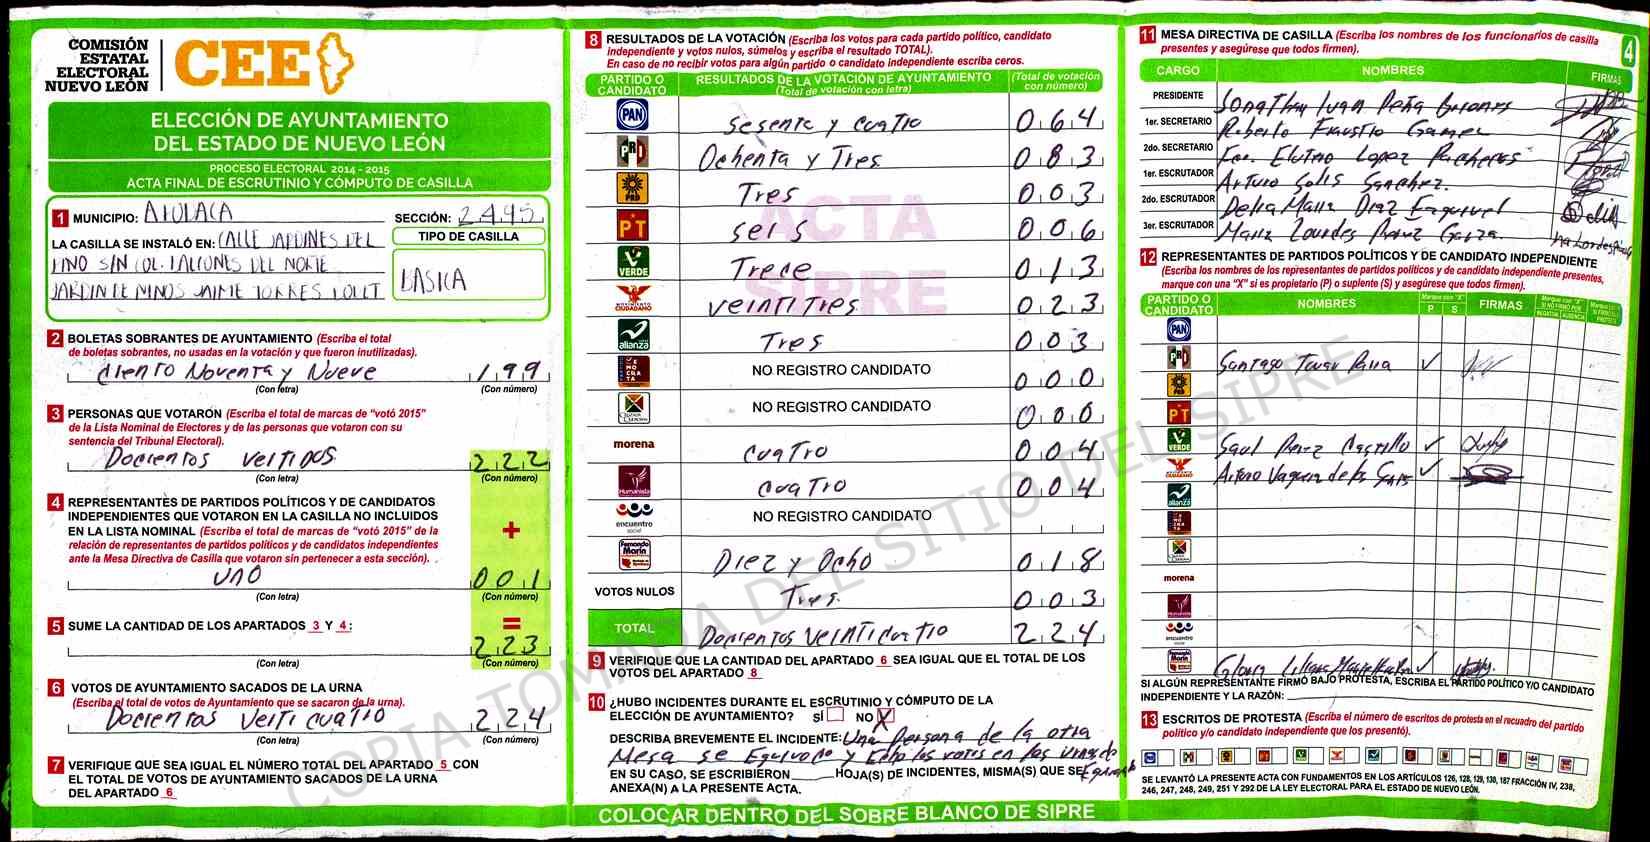 COMISIÓN
ESTATAL
ELECTORAL
NUEVO LEÓN
CEE
ELECCIÓN DE AYUNTAMIENTO
DEL ESTADO DE NUEVO LEÓN
PROCESO ELECTORAL 2014 - 2015
ACTA FINAL DE ESCRUTINIO Y CÓMPUTO DE CASILLA
1 MUNICIPIO: SECCIÓN: 2495
LA CASILLA SE INSTALÓ EN: CALLE JARDINES DEL
TIPO DE CASILLA
PINO SIN COL. DEL NORTE
JARDIN DE NINOS JAIME TORRES
BASICA
2 BOLETAS SOBRANTES DE AYUNTAMIENTO (Escriba el total
de boletas sobrantes, no usadas en la votación y que fueron inutilizadas).
Ciento Noventa y Nueve 199
(Con letra) (Con número)
3 PERSONAS QUE VOTARON (Escriba el total de marcas de “votó 2015”
de la Lista Nominal de Electores y de las personas que votaron con su
sentencia del Tribunal Electoral).
Docientos veitidos 222
(Con letra) (Con número)
4 REPRESENTANTES DE PARTIDOS POLÍTICOS Y DE CANDIDATOS
INDEPENDIENTES QUE VOTARON EN LA CASILLA NO INCLUIDOS
EN LA LISTA NOMINAL (Escriba el total de marcas de “votó 2015” de la
relación de representantes de partidos políticos y de candidatos independientes
ante la Mesa Directiva de Casilla que votaron sin pertenecer a esta sección).
+
uno 001
(Con letra) (Con número)
5 SUME LA CANTIDAD DE LOS APARTADOS 3 Y 4: =
223
(Con letra) (Con número)
6 VOTOS DE AYUNTAMIENTO SACADOS DE LA URNA
(Escriba el total de votos de Ayuntamiento que se sacaron de la urna).
Docientos veiticuatro 224
(Con letra) (Con número)
7 VERIFIQUE QUE SEA IGUAL EL NÚMERO TOTAL DEL APARTADO 5 CON
EL TOTAL DE VOTOS DE AYUNTAMIENTO SACADOS DE LA URNA
DEL APARTADO 6
8 RESULTADOS DE LA VOTACIÓN (Escriba los votos para cada partido político, candidato
independiente y votos nulos, súmelos y escriba el resultado TOTAL).
En caso de no recibir votos para algún partido o candidato independiente escriba ceros.
PARTIDO O CANDIDATO RESULTADOS DE LA VOTACIÓN DE AYUNTAMIENTO (Total de votación con letra) (Total de votación con número)
PAN Sesenta y cuatro 064
PRI Ochenta y Tres 083
PRD Tres 003
PT seis 006
VERDE Trece 013
MOVIMIENTO CIUDADANO veintitres 023
alianza Tres 003
NO REGISTRO CANDIDATO 000
NO REGISTRO CANDIDATO 000
morena cuatro 004
Humanista cuatro 004
encuentro social NO REGISTRO CANDIDATO
Fernando Marín Diez y Ocho 018
VOTOS NULOS Tres 003
TOTAL Docientos veinticuatro 224
ACTA
SIPRE
9 VERIFIQUE QUE LA CANTIDAD DEL APARTADO 6 SEA IGUAL QUE EL TOTAL DE LOS
VOTOS DEL APARTADO 8
10 ¿HUBO INCIDENTES DURANTE EL ESCRUTINIO Y CÓMPUTO DE LA
ELECCIÓN DE AYUNTAMIENTO? SÍ NO X
DESCRIBA BREVEMENTE EL INCIDENTE: Una Persona de la otra
Mesa se Equivoco y los votos en las
EN SU CASO, SE ESCRIBIERON HOJA(S) DE INCIDENTES, MISMA(S) QUE SE
ANEXA(N) A LA PRESENTE ACTA.
COLOCAR DENTRO DEL SOBRE BLANCO DE SIPRE
4
11 MESA DIRECTIVA DE CASILLA (Escriba los nombres de los funcionarios de casilla
presentes y asegúrese que todos firmen).
CARGO NOMBRES FIRMAS
PRESIDENTE Jonathan Ivan Peña
1er. SECRETARIO Roberto Faustio
2do. SECRETARIO Lopez
1er. ESCRUTADOR Arturo Solis Sanchez.
2do. ESCRUTADOR Delia Maria Diaz Esquivel
3er. ESCRUTADOR Maria Lourdes Perez Garza
12 REPRESENTANTES DE PARTIDOS POLÍTICOS Y DE CANDIDATO INDEPENDIENTE
(Escriba los nombres de los representantes de partidos políticos y de candidato independiente presentes,
marque con una “X” si es propietario (P) o suplente (S) y asegúrese que todos firmen).
PARTIDO O CANDIDATO NOMBRES Marque con “X” P S FIRMAS
PAN
PRI Santiago Tovar
PRD
PT
VERDE Saul Perez Castillo
Arturo
alianza
morena
encuentro social
Fernando Marín
SI ALGÚN REPRESENTANTE FIRMÓ BAJO PROTESTA, ESCRIBA EL PARTIDO POLÍTICO Y/O CANDIDATO
INDEPENDIENTE Y LA RAZÓN:
13 ESCRITOS DE PROTESTA (Escriba el número de escritos de protesta en el recuadro del partido
político y/o candidato independiente que los presentó).
SE LEVANTÓ LA PRESENTE ACTA CON FUNDAMENTOS EN LOS ARTÍCULOS 126, 128, 129, 130, 187 FRACCIÓN IV, 238,
246, 247, 248, 249, 251 Y 292 DE LA LEY ELECTORAL PARA EL ESTADO DE NUEVO LEÓN.
COPIA TOMADA DEL SITIO DEL SIPRE